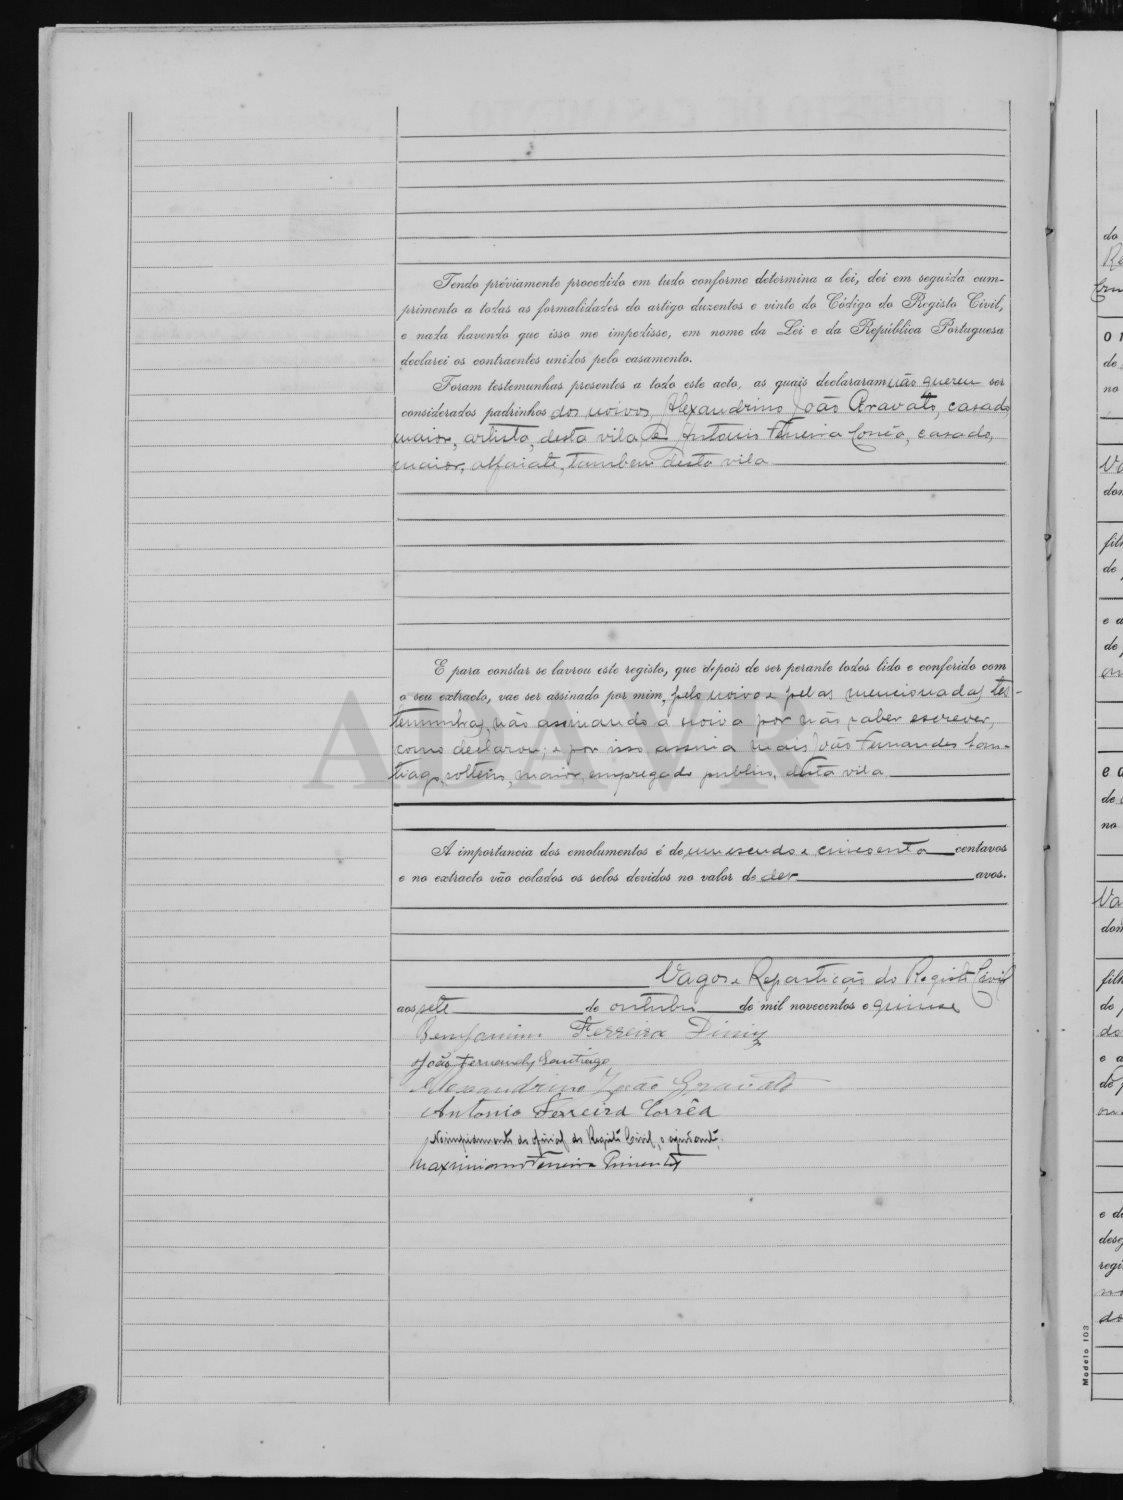 Tendo préviamente procedido em tudo conforme determina a lei, dei em seguida cum-
primento a todas as formalidades do artigo duzentos e vinte do Código do Registo Civil,
e nada havendo que isso me impedisse, em nome da Lei e da República Portuguesa
declarei os contraentes unidos pelo casamento.
Foram testemunhas presentes a todo este acto, as quais declararam não querem ser
considerados padrinhos dos noivos, Alexandrino João Gravato, casado
maior, artista, desta vila e Antonio Ferreira Corrêa, casado,
maior, alfaiate, tambem desta vila
E para constar se lavrou este registo, que depois de ser perante todos lido e conferido com
o seu extracto, vae ser assinado por mim, pelo noivo e pelas mencionadas tes-
temunhas, não assinando a noiva por não saber escrever,
como declarou; e por isso assina mais João Fernandes San-
tiago, solteiro, maior, empregado publico, desta vila
A importancia dos emolumentos é de um escudo e cincoenta centavos
e no extracto vão colados os selos devidos no valor de dez avos.
Vagos e Repartição do Registo Civil
aos sete de outubro de mil novecentos e quinze
Benjamim Ferreira Diniz
João Fernandes Santiago
Alexandrino João Gravato
Antonio Ferreira Corrêa
No impedimento do oficial do Registo Civil, o ajudante,
Maximiano Ferreira Pimentel
ADAVR
do
on
de
no
Va
dom
filh
de
e a
de
e a
de
no
Va
dom
filh
de
do
e a
de
e d
desej
regi
Modelo 103